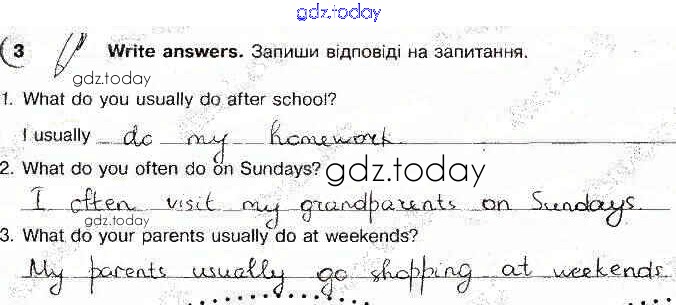 gdz.today
3 Write answers. Запиши відповіді на запитання.
gdz.today
1. What do you usually do after school?
I usually do my homework.
2. What do you often do on Sundays?
gdz.today
I often visit my grandparents on Sundays.
gdz.today
3. What do your parents usually do at weekends?
My parents usually go shopping at weekends.